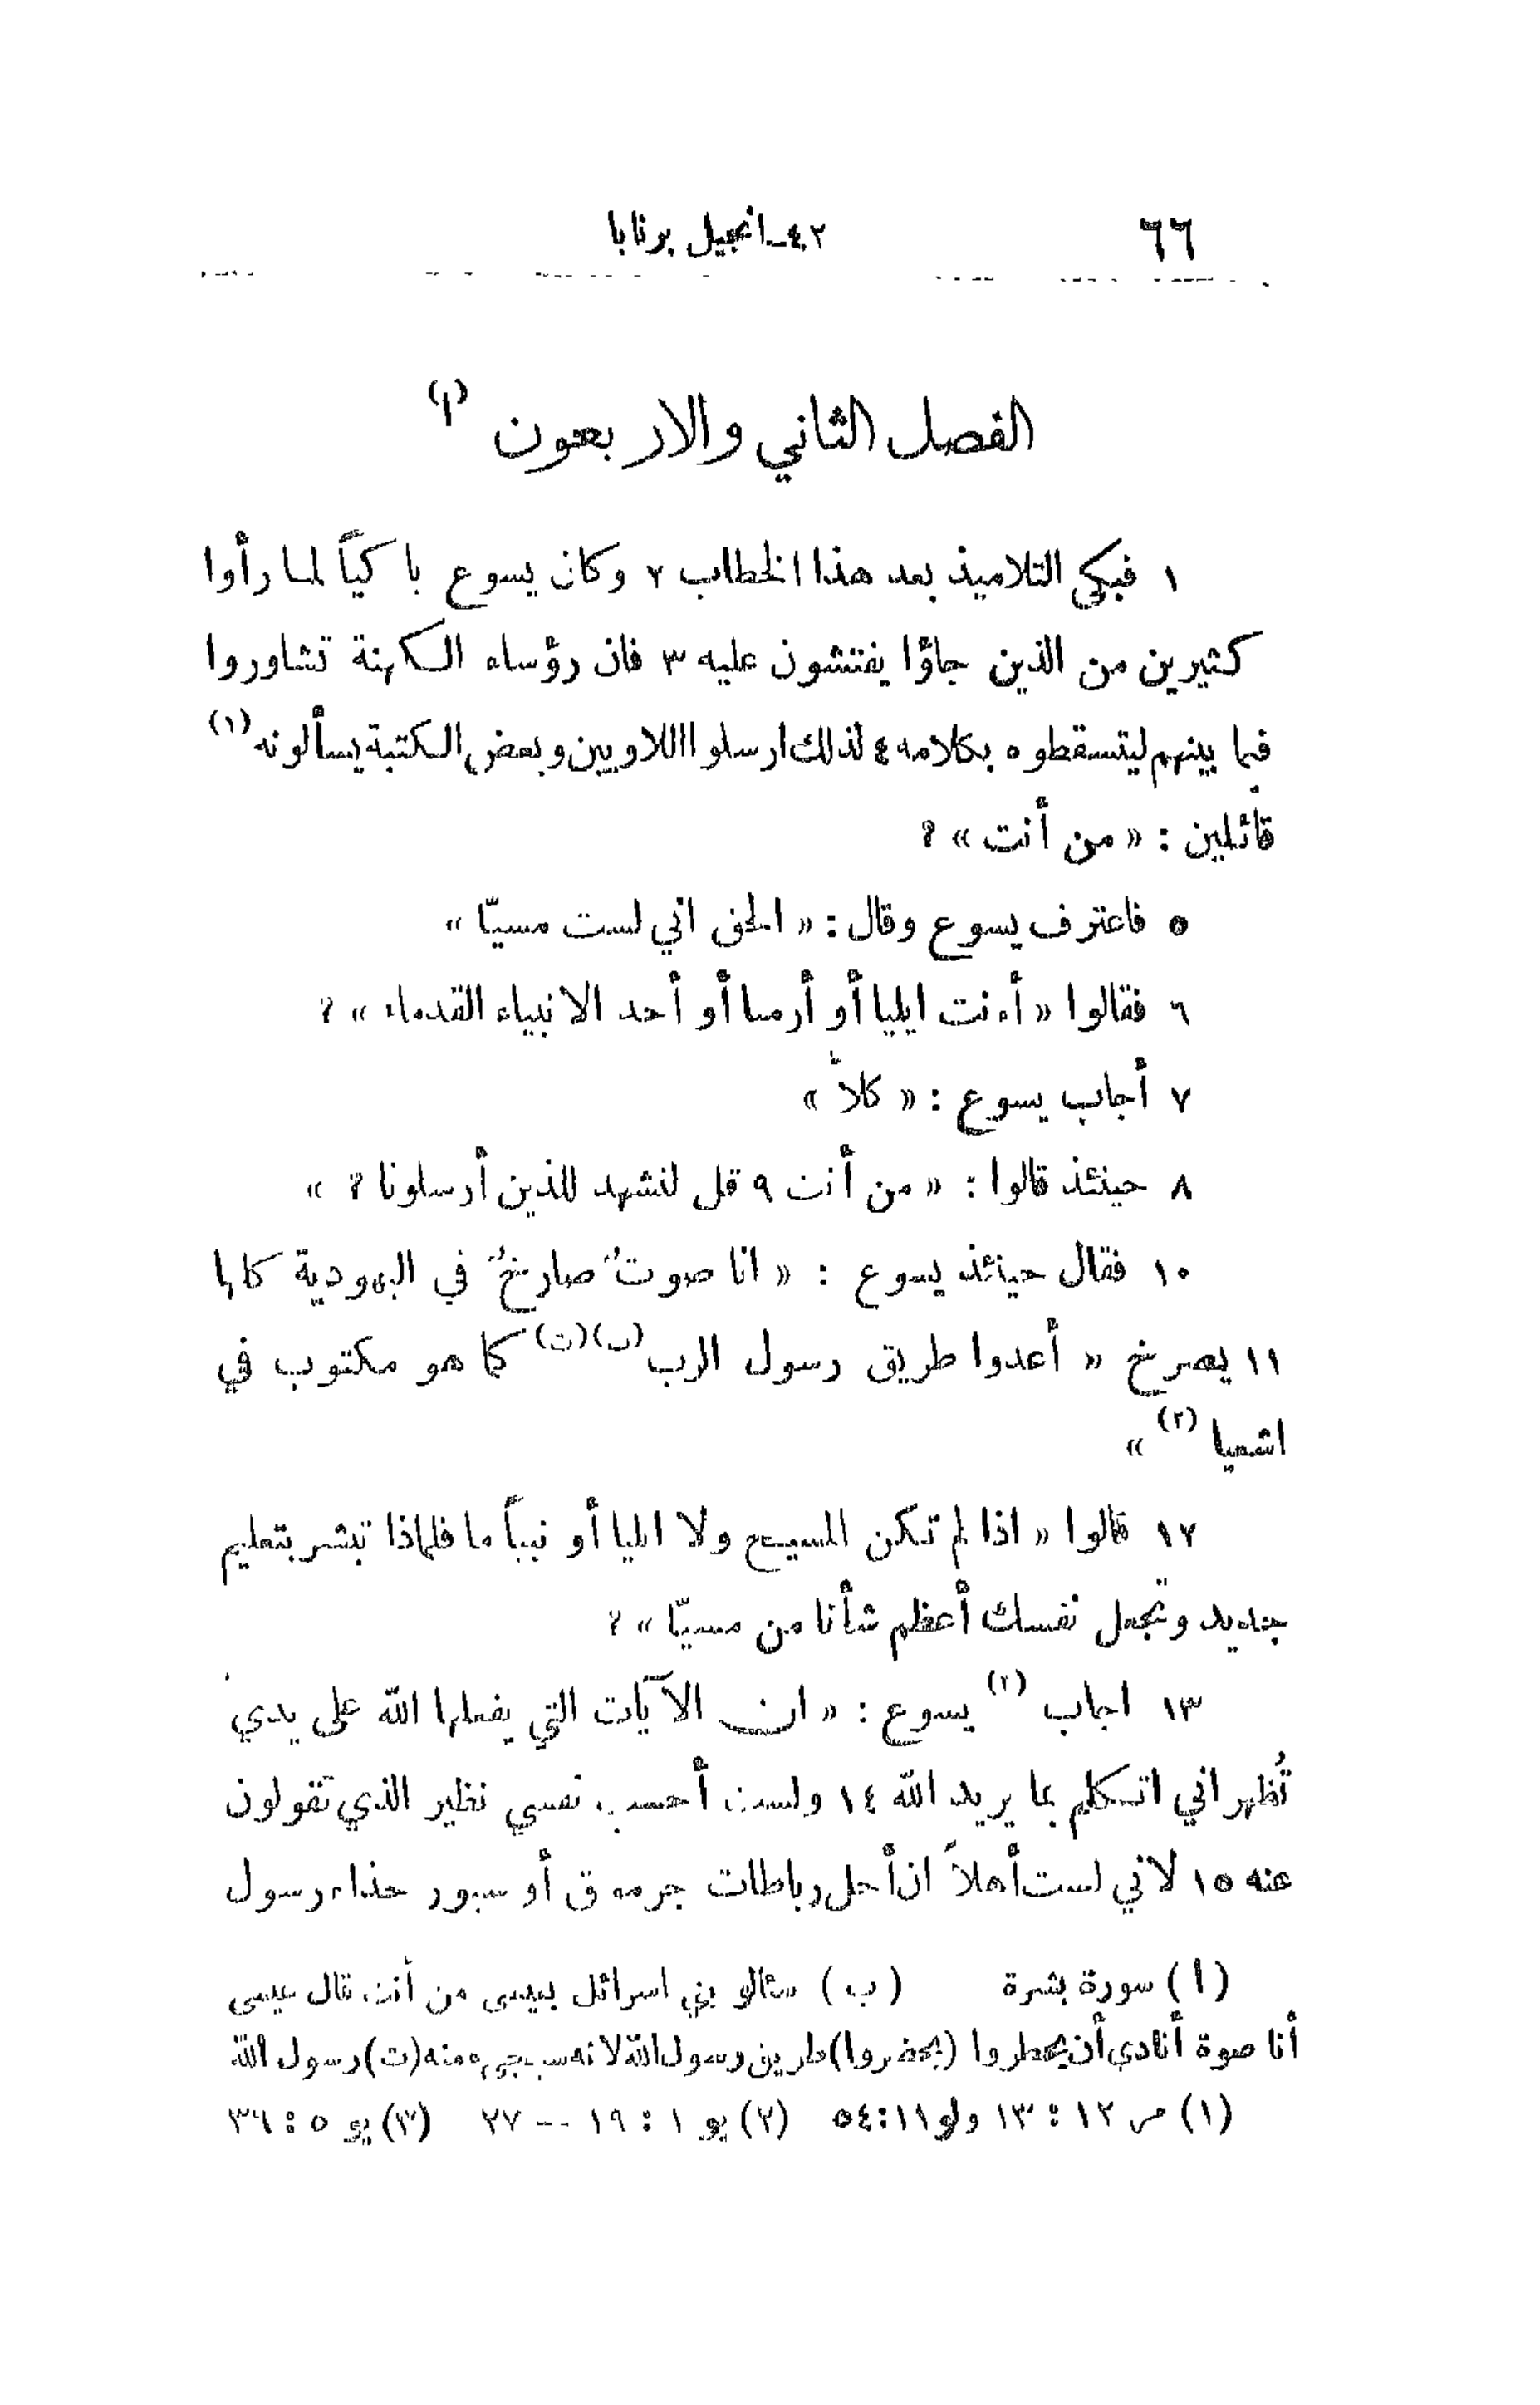 ٦٦
٤٢ـ انجيل برنابا
الفصل الثاني والاربعون (ا)
١ فبكى التلاميذ بعد هذا الخطاب ٢ وكان يسوع باكياً لما رأوا
كثيرين من الذين جاؤا يفتشون عليه ٣ فان رؤساء الكهنة تشاوروا
فيما بينهم ليتسقطوه بكلامه ٤ لذلك ارسلوا اللاويين وبعض الكتبة يسألونه (١)
قائلين : « من أنت » ؟
٥ فاعترف يسوع وقال : « الحق اني لست مسيّا »
٦ فقالوا « أءنت ايليا أو أرميا أو أحد الانبياء القدماء » ؟
٧ أجاب يسوع : « كلاّ »
٨ حينئذ قالوا : « من أنت ٩ قل لنشهد للذين أرسلونا ؟ »
١٠ فقال حينئذ يسوع : « انا صوتٌ صارخٌ في اليهودية كلها
١١ يصرخ « أعدوا طريق رسول الرب (ب)(ت) كما هو مكتوب في
اشعيا (٢) »
١٢ قالوا « اذا لم تكن المسيح ولا ايليا أو نبياً ما فلماذا تبشر بتعليم
جديد وتجعل نفسك أعظم شأنا من مسيّا » ؟
١٣ اجاب (٣) يسوع : « ان الآيات التي يفعلها الله على يدي
تُظهر اني اتكلم بما يريد الله ١٤ ولست أحسب نفسي نظير الذي تقولون
عنه ١٥ لاني لست أهلاً ان أحل رباطات جرموق أو سيور حذاء رسول
(ا) سورة بشرة (ب) سئالو بني اسرائل بيسى من أنت قال عيسى
أنا صوة أنادى أن يحطروا (يحضروا) طريق رسول الله لانه سيجيء منه (ت) رسول الله
(١) مر ١٢ : ١٣ ولو ١١:٥٤ (٢) يو ١ : ١٩ -- ٢٧ (٣) يو ٥ : ٣٦